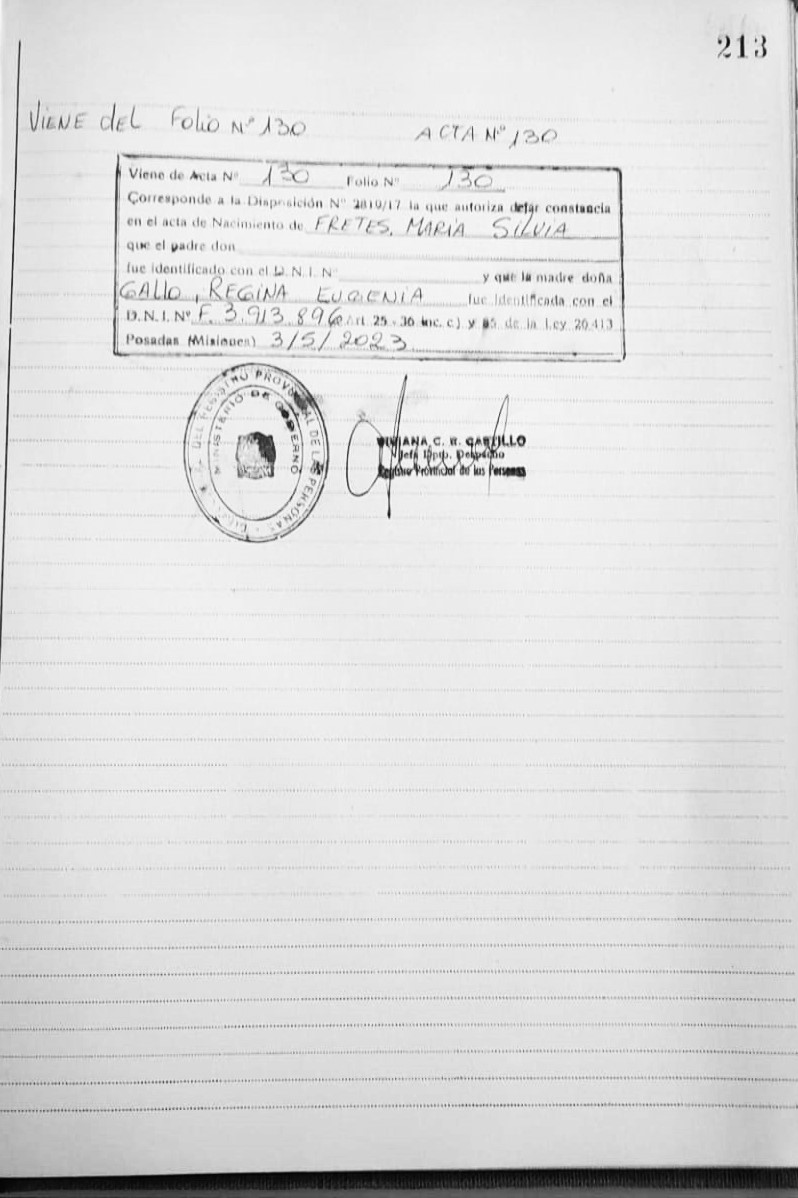 213
VIENE DEL FOLIO Nº 130 ACTA Nº 130
Viene de Acta Nº 130 Folio Nº 130
Corresponde a la Disposición Nº 2819/17 la que autoriza dejar constancia
en el acta de Nacimiento de FRETES, MARIA SILVIA
que el padre don
fue identificado con el D.N.I. Nº y que la madre doña
GALLO, REGINA EUGENIA fue Identificada con el
D.N.I. Nº F. 3.913.896 (Art 25 - 36 inc. c) y 85 de la Ley 26.413
Posadas (Misiones) 3/5/2023
DEL REGISTRO PROVINCIAL DE LAS PERSONAS
MINISTERIO DE GOBIERNO
VIVIANA C. R. CASTILLO
Jefa Dpto. Despacho
Registro Provincial de las Personas